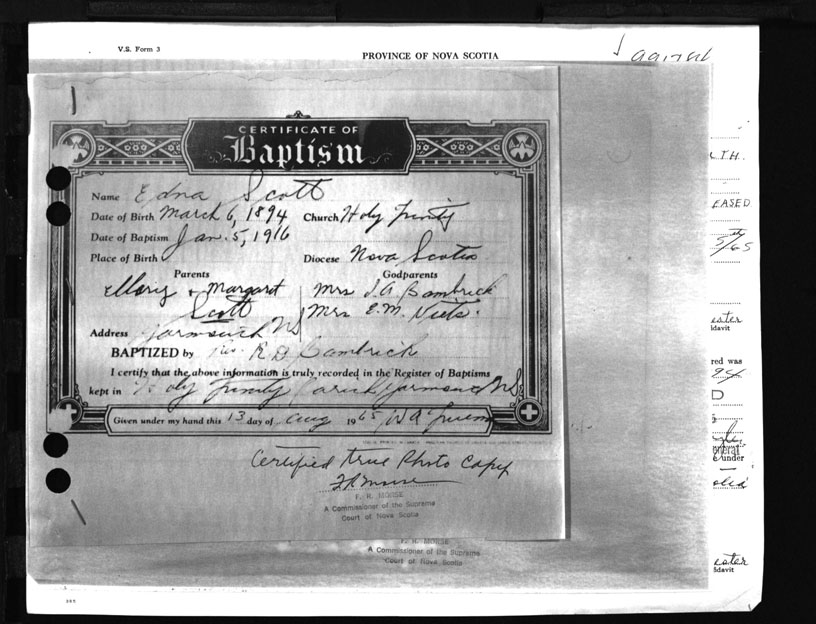 V.S. Form 3
PROVINCE OF NOVA SCOTIA
CERTIFICATE OF
Baptism
Name Edna Scott
Date of Birth March 6, 1894 Church Holy Trinity
Date of Baptism Jan. 5, 1916
Place of Birth Diocese Nova Scotia
Parents Godparents
Ellery & Margaret Mrs J.A Bambrick
Scott Mrs E.M. Viets.
Address Yarmouth NS
BAPTIZED by Rev. R D Bambrick
I certify that the above information is truly recorded in the Register of Baptisms
kept in Holy Trinity Parish Yarmouth NS
Given under my hand this 13 day of Aug 1965 W A
Certified true Photo Copy
F R Morse
F. R. MORSE
A Commissioner of the Supreme
Court of Nova Scotia
F. R. MORSE
A Commissioner of the Supreme
Court of Nova Scotia
TH.
EASED
5/65
ester
idavit
red was
94
D
e under
ester
fidavit